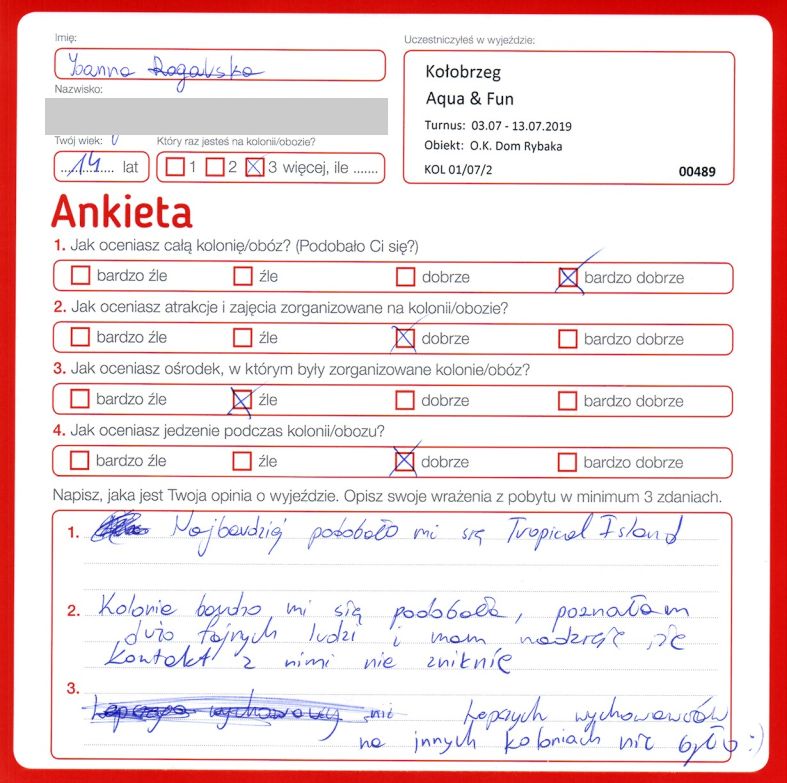 Imię:
Uczestniczyłeś w wyjeździe:
Joanna Rogalska
Nazwisko:
Kołobrzeg
Aqua & Fun
Turnus: 03.07 - 13.07.2019
Obiekt: O.K. Dom Rybaka
KOL 01/07/2
00489
Twój wiek:
Który raz jesteś na kolonii/obozie?
14 lat
1 2 3 więcej, ile .......
Ankieta
1. Jak oceniasz całą kolonię/obóz? (Podobało Ci się?)
bardzo źle źle dobrze bardzo dobrze
2. Jak oceniasz atrakcje i zajęcia zorganizowane na kolonii/obozie?
bardzo źle źle dobrze bardzo dobrze
3. Jak oceniasz ośrodek, w którym były zorganizowane kolonie/obóz?
bardzo źle źle dobrze bardzo dobrze
4. Jak oceniasz jedzenie podczas kolonii/obozu?
bardzo źle źle dobrze bardzo dobrze
Napisz, jaka jest Twoja opinia o wyjeździe. Opisz swoje wrażenia z pobytu w minimum 3 zdaniach.
1. Najbardziej podobało mi się Tropical Island
2. Kolonie bardzo mi się podobała, poznałam
dużo fajnych ludzi i mam nadzieję, że
kontakt z nimi nie zniknie
3. Lepszych wychowawców
na innych koloniach nie było :)